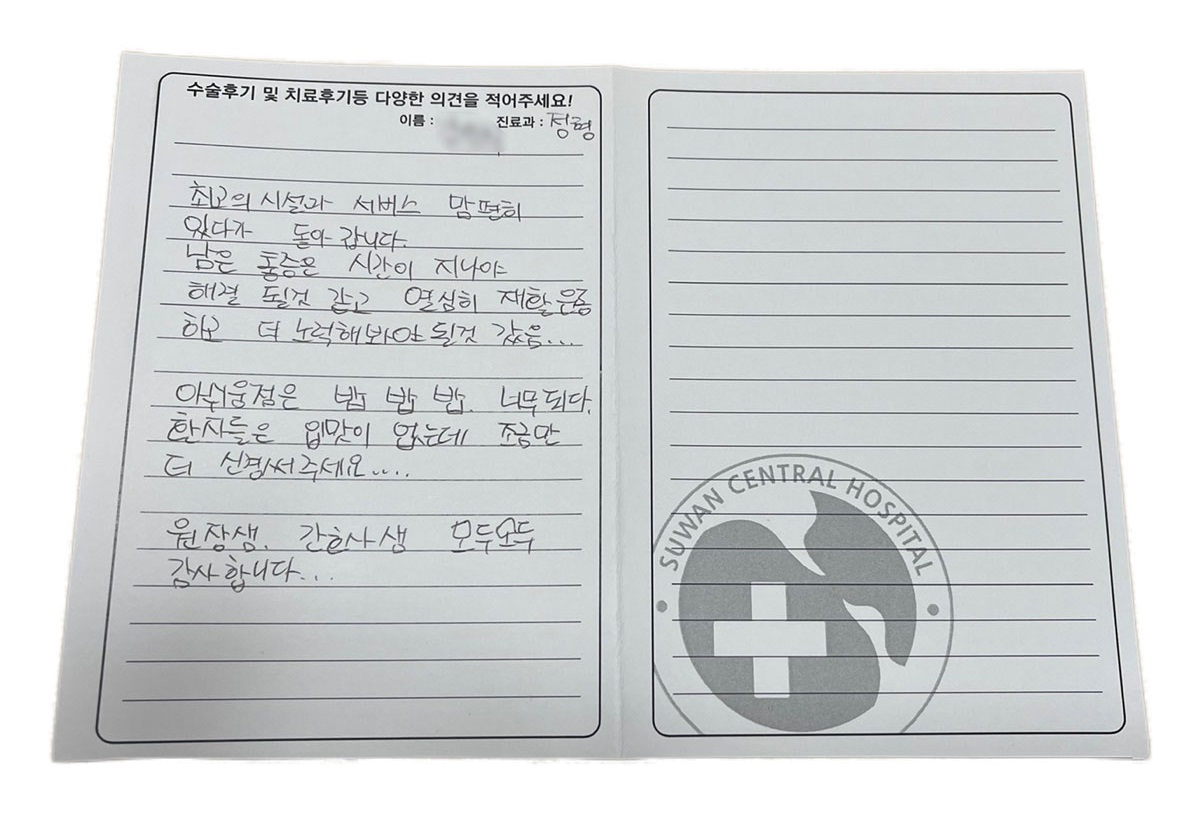 수술후기 및 치료후기등 다양한 의견을 적어주세요!
이름 : 진료과 : 정형
최고의 시설과 서버스 맘편히
있다가 돌아 갑니다.
남은 통증은 시간이 지나야
해결 될것 같고 열심히 재활운동
하고 더 노력해봐야 될것 같음...
아쉬움점은 밥 밥 밥. 너무되다.
환자들은 입맛이 없는데 조금만
더 신경써주세요....
원장생. 간호사생 모두모두
감사합니다...
SUWAN CENTRAL HOSPITAL